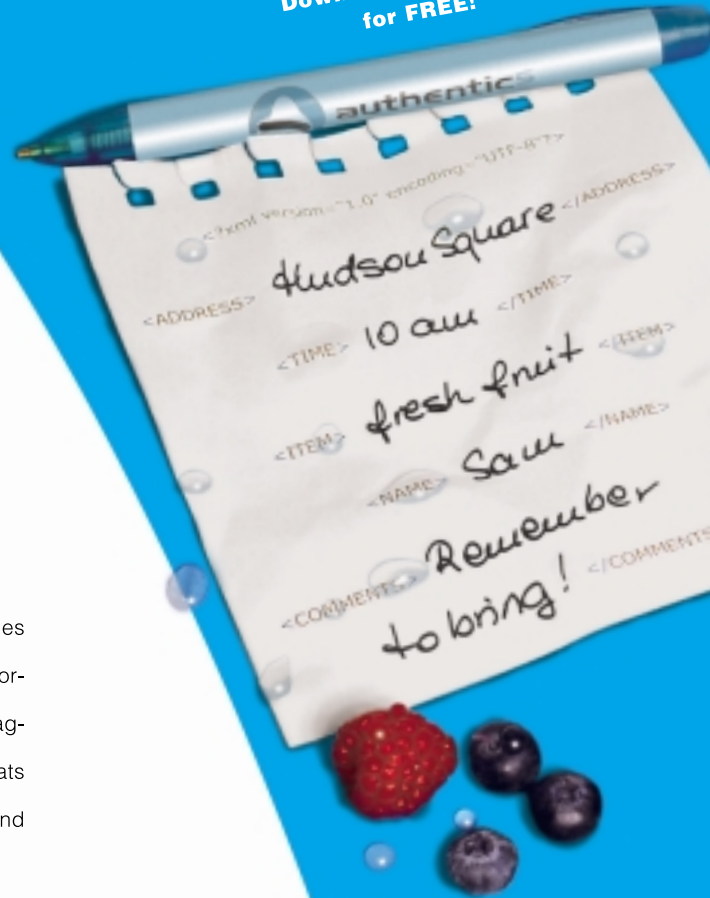 for FREE!
authentic
<?xml version="1.0" encoding="UTF-8"?>
<ADDRESS> Hudson Square </ADDRESS>
<TIME> 10 am </TIME>
<ITEM> fresh fruit </ITEM>
<NAME> Sam </NAME>
<COMMENTS> Remember
to bring! </COMMENTS
es
or-
ag-
ats
nd